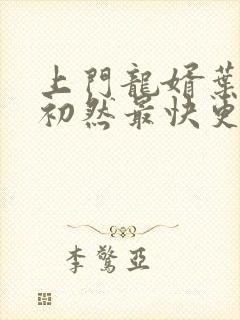 上門龍婿葉
初然最快更
李驚亞